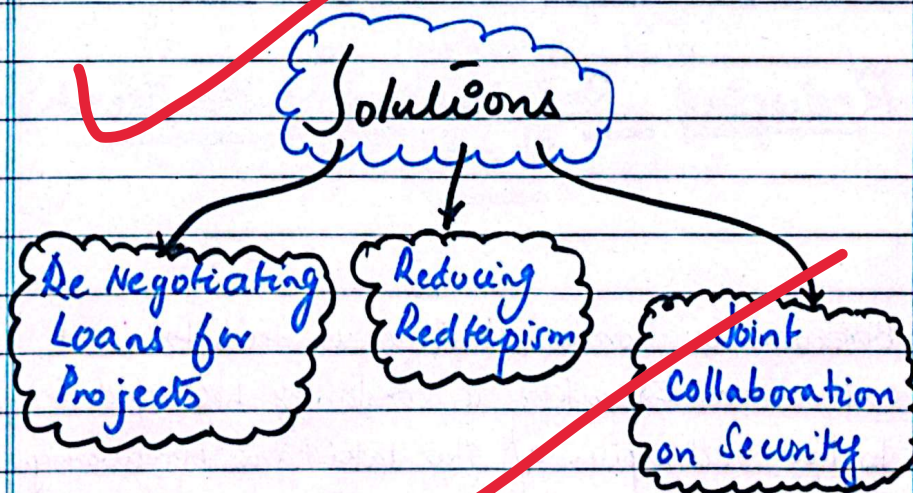 Solutions
Re Negotiating
Loans for
Projects
Reducing
Redtapism
Joint
Collaboration
on Security